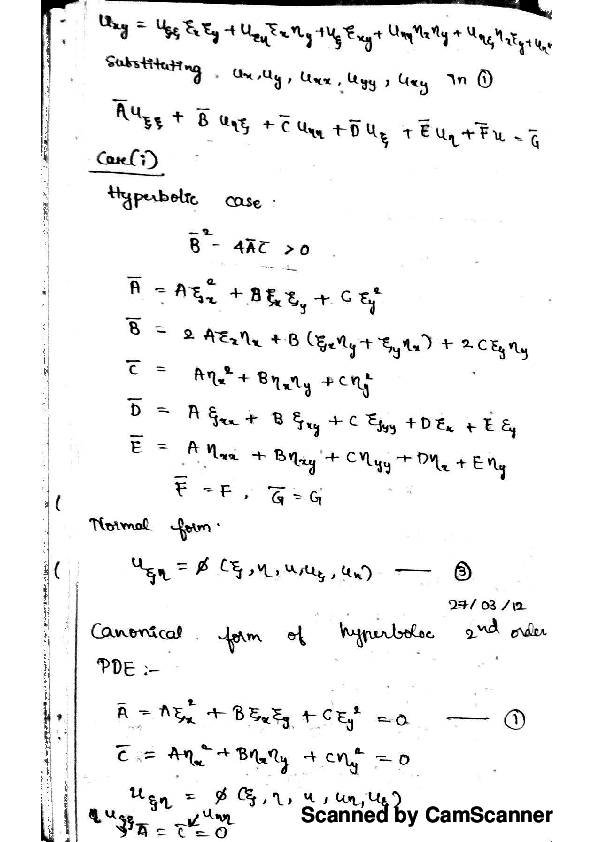 uxy = uξξ ξx ξy + uξη ξx ηy + uξ ξxy + uηη ηx ηy + uηξ ηx ξy + uη
Substitating ux, uy, uxx, uyy, uxy in ①
A̅ uξξ + B̅ uηξ + C̅ uηη + D̅ uξ + E̅ uη + F̅u = G̅
Case(i)
Hyperbolic case.
B̅² - 4A̅C̅ > 0
A̅ = Aξx² + Bξx ξy + C ξy²
B̅ = 2 Aξx ηx + B (ξx ηy + ξy ηx) + 2 C ξy ηy
C̅ = Aηx² + Bηx ηy + Cηy²
D̅ = A ξxx + B ξxy + C ξyy + D ξx + E ξy
E̅ = A ηxx + Bηxy + Cηyy + Dηx + E ηy
F̅ = F, G̅ = G
Normal form.
uξη = ø (ξ, η, u, uξ, uη) — ③
27/03/12
Canonical form of hyperboloc 2nd order
PDE :-
A̅ = Aξx² + Bξx ξy + Cξy² = 0 — ①
C̅ = Aηx² + Bηx ηy + Cηy² = 0
uξη = ø (ξ, η, u, uη, uξ)
uξξ uηη
A̅ = C̅ = 0
Scanned by CamScanner